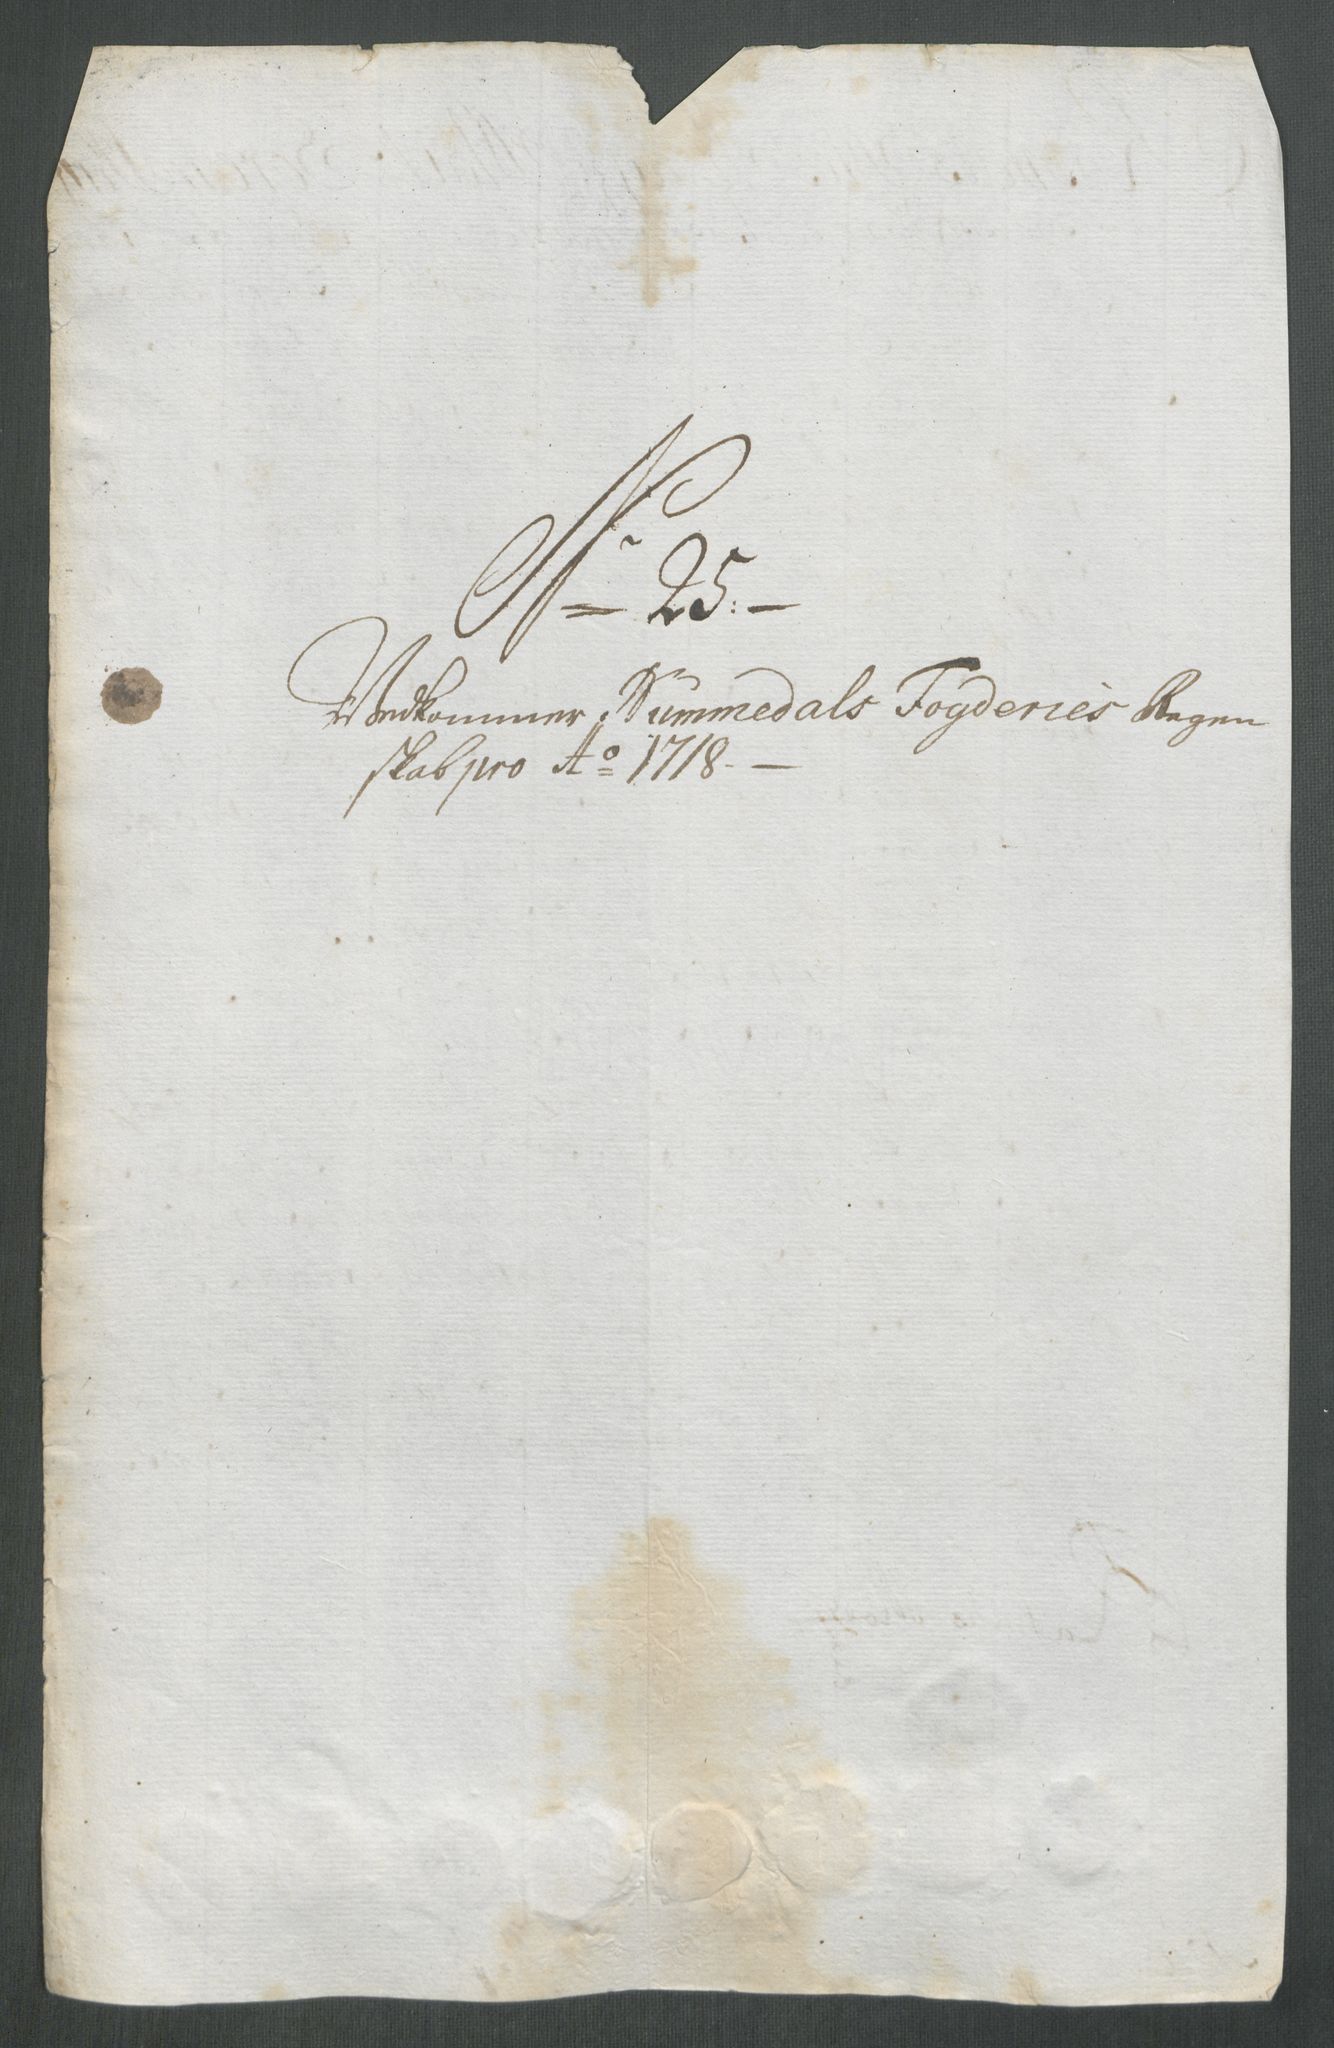 No 25.
Vedkommer Nummedals Fogderies Regen
skab pro Ao 1718.